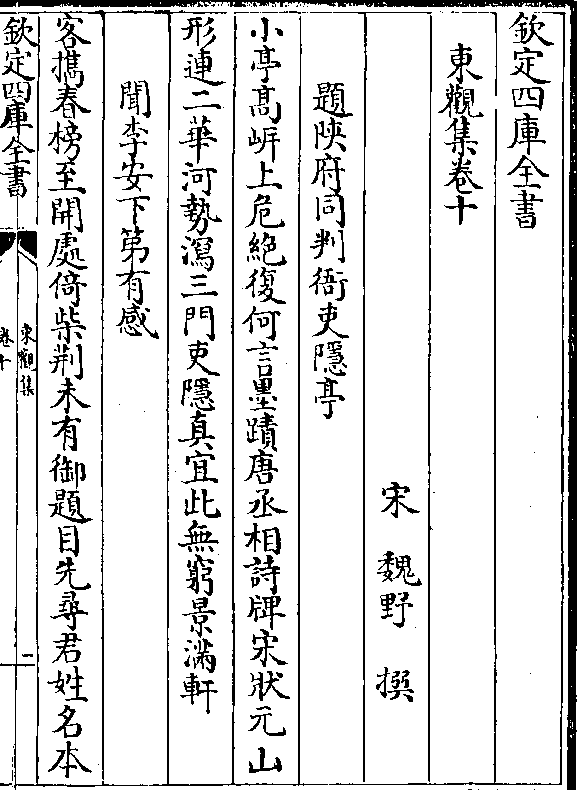 欽定四庫全書
東觀集卷十
宋　魏野　撰
題陜府同判衙吏隱亭
小亭髙㟁上危絶復何言墨蹟唐丞相詩牌宋狀元山
形連二華河勢瀉三門吏隱真宜此無窮景滿軒
聞李安下第有感
客攜春榜至開處倚柴荆未有御題目先尋君姓名本
欽定四庫全書
東觀集
卷十
一